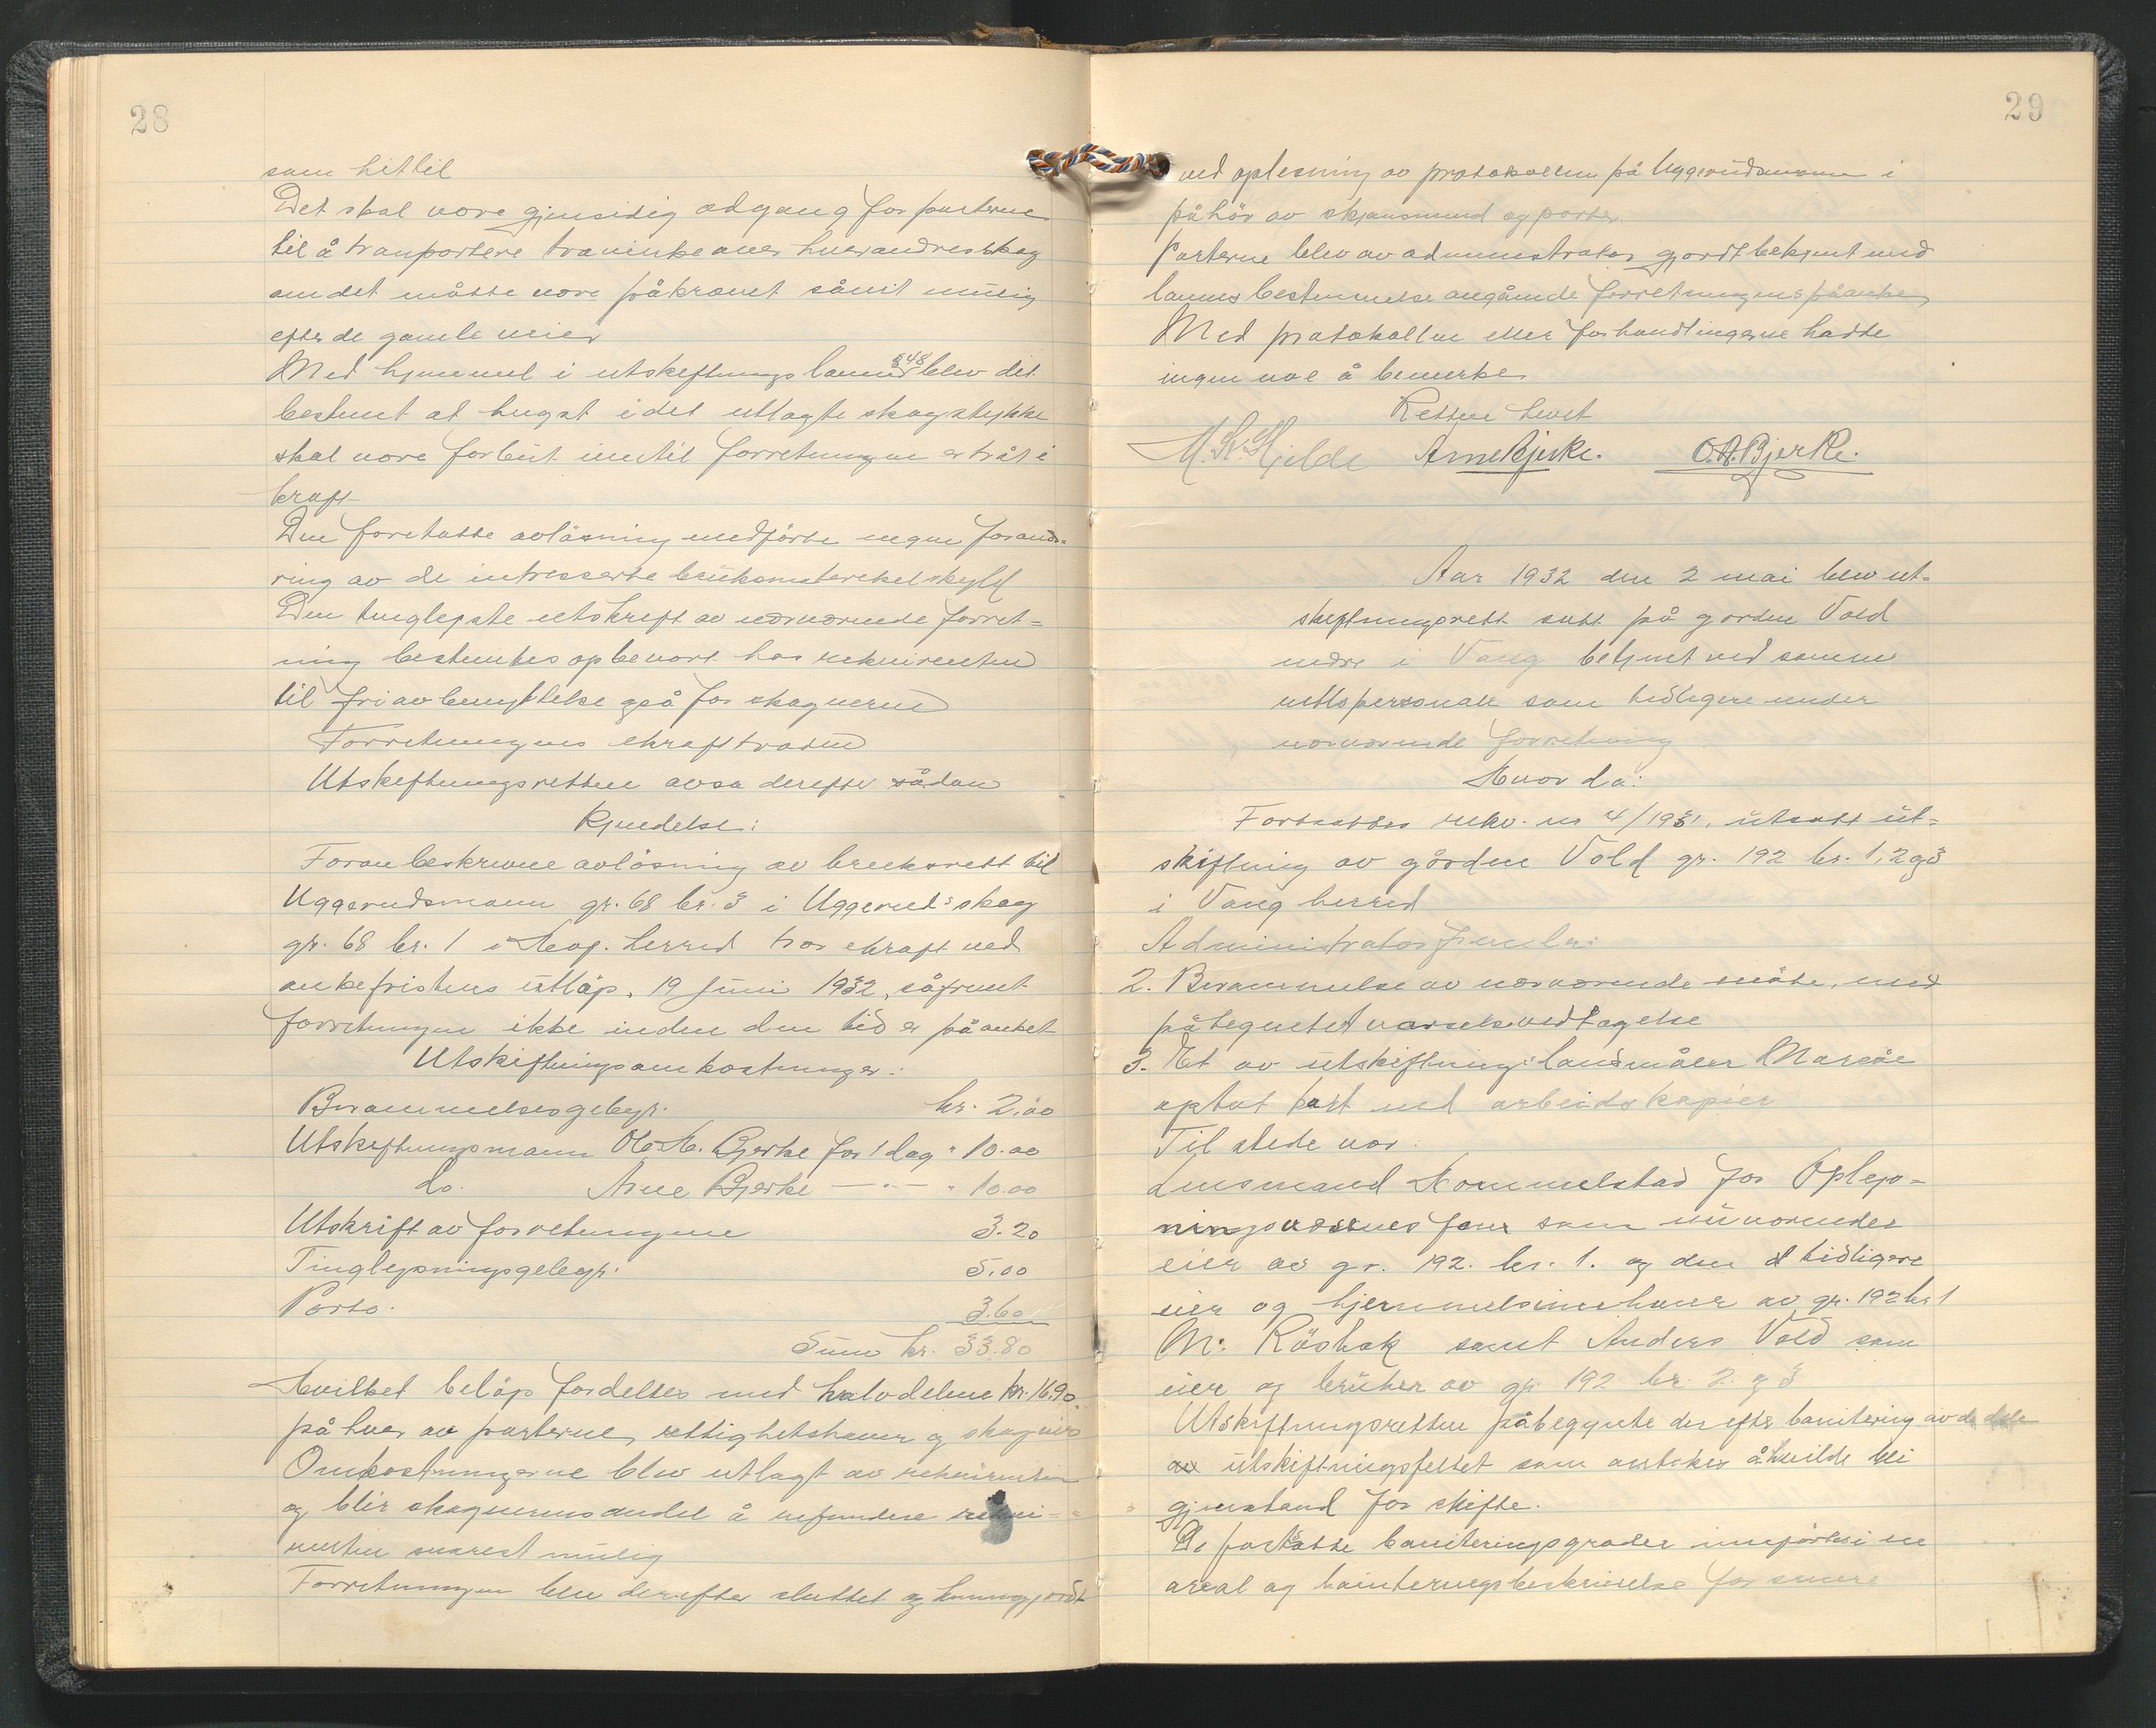 28
som hittil
Det skal være gjensidig adgang for parterne
til å tranportere travirke over hverandres skog
om det måtte være påkrævet såvit mulig
efter de gamle veier
Med hjemmel i utskiftningslovens § 48 blev det
bestemt at hugst i det utlagte skogstykke
skal være forbut inntil forretningen er tråt i
kraft
Den foretatte avløsning medførte ingen forand-
ring av de intresserte bruks matrikelskyld
Den tinglyste utskrift av nærværende forret-
ning bestemtes opbevart hos rekvirenten
til fri avbenyttelse også for skogeieren
Forretningens ikrafttræden
Utskiftningsretten avsa derefter sådan
Kjendelse:
Foran beskrevne avløsning av bruksrett til
Uggerudsmoen gr. 68 br. 3 i Uggerud skog
gr. 68 br. 1 i herred trær ikraft ved
ankefristens utløp, 19 juni 1932, såfremt
forretningen ikke inden den tid er påanket
Utskiftningsomkostninger:
Berammelsesgebyr. kr. 2.00
Utskiftningsmann Ole H. Bjerke for 1 dag " 10.00
do. Arne Bjerke — " — " 10.00
Utskrift av forretningen 3.20
Tinglysningsgebyr. 5.00
Porto. 3.60
Sum kr. 33.80
Hvilket beløp fordelles med halvdelen kr. 16.90
på hver av parterne, rettighetshaver og skogeier
Omkostningerne blev utlagt av rekvirenten
og blir skogeierens andel å refundere rekvi-
renten snarest mulig
Forretningen blev derefter sluttet og kunngjordt
29
ved oplesning av protokollen på Uggerudsmoen i
påhør av skjønsmend og parter.
Parterne blev av administrator gjordt bekjent med
lovens bestemmelse angående forretningens påanke
Med protokollen eller forhandlingerne hadde
ingen noe å bemerke
Retten hevet
M. K. Hjelde Arne Bjerke. O. H. Bjerke.
Aar 1932 den 2 mai blev ut-
skiftningsrett satt på gården Vold
nedre i Vang betjent ved samme
rettspersonale som tidligere under
nærværende forretning
Hvor da:
Fortsattes rekv. nr 4/1931, utsatt ut-
skiftning av gården Vold gr. 192 br. 1, 2 og 3
i Vang herred
Administrator fremla:
2. Berammelse av nærværende møte, med
påtegnet varselsvedtagelse
3. Et av utskiftningslandmåler
optat kart med arbeidskopier
Til stede var:
Lensmand Hommelstad for Oplys-
ningsvæsenets fond som nuværende
eier av gr. 192. br. 1. og den tidligere
eier og hjemmelsinnehaver av gr. 192 br 1
M. Røshak samt Anders Vold som
eier og bruker av gr. 192 br. 2. og 3
Utskiftningsretten påbegynte derefter bonitering av de dele
av utskiftningsfeltet som antokes å kunde bli
gjenstand for skifte.
De fastsatte boniteringsgrader innførtes i en
areal og boniteringsbeskrivelse for senere